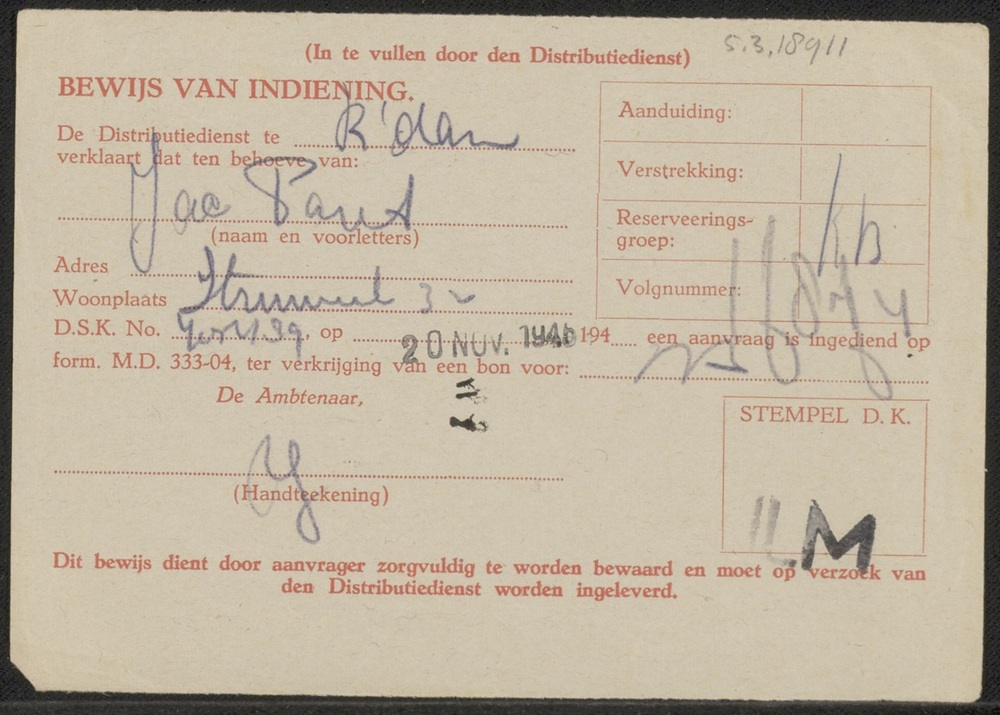 5.3.1891
(In te vullen door den Distributiedienst)
BEWIJS VAN INDIENING.
De Distributiedienst te R'dam
verklaart dat ten behoeve van:
Jac
(naam en voorletters)
Adres
Woonplaats 32
D.S.K. No. , op 20 NOV. 1946 194 een aanvraag is ingediend op
form. M.D. 333-04, ter verkrijging van een bon voor:
De Ambtenaar,
(Handteekening)
Aanduiding:
Verstrekking:
Reserveerings-
groep:
Volgnummer:
STEMPEL D. K.
M
Dit bewijs dient door aanvrager zorgvuldig te worden bewaard en moet op verzoek van
den Distributiedienst worden ingeleverd.